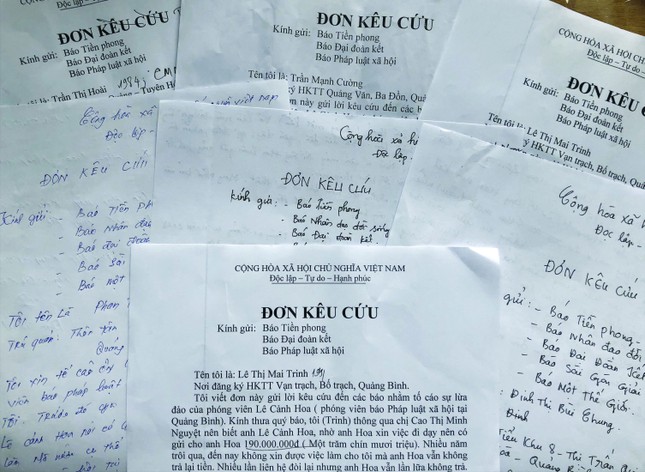 Độc lập – Tự do – Hạnh phúc
ĐƠN KÊU CỨU
Kính gửi: Báo Tiền phong
Báo Đại đoàn kết
Báo Pháp luật xã hội
Trần Thị Hoài 1984; CM
ĐƠN KÊU CỨU
Kính gửi: Báo Tiền phong
Báo Đại đoàn kết
Báo Pháp luật xã hội
Tên tôi là: Trần Mạnh Cường
HKTT Quảng Văn, Ba Đồn, Quảng
này gửi lời kêu cứu đến các
CỘNG HÒA XÃ HỘI CHỦ NGHĨA
Độc lập – Tự do –
ĐƠN KÊU CỨU
Kính gửi: Báo Tiền phong
Báo Đại đoàn kết
Báo Pháp luật xã hội
Tên tôi là: Lê Thị Mai Trinh
ký HKTT Vạn trạch, Bố trạch, Quảng
Cộng hòa xã
Độc lập -
ĐƠN KÊU CỨU
Kính gửi: - Báo Tiền
- Báo Nhân
- Báo đại đoàn
- Báo Sài
- Báo một
Tôi tên là Phan
Trú quán: Thôn
Quảng
Tôi xin tố cáo
viên báo pháp luật
Cộng hòa xã hội
Độc lập -
ĐƠN KÊU CỨU
kính gửi: - Báo tiền phong
- Báo Nhân đạo đời sống
- Báo Đại đoàn kết
Cộng hòa xã
Độc lập -
ĐƠN KÊU CỨU
gửi: - Báo Tiền phong
- Báo Nhân đạo đời
- Báo Đại Đoàn Kết
- Báo Sài Gòn Giải
- Báo Một Thế Giới.
Đinh Thị Bíu Chung.
Tiểu khu 8 - Thị Trấn
CỘNG HÒA XÃ HỘI CHỦ NGHĨA VIỆT NAM
Độc lập – Tự do – Hạnh phúc
ĐƠN KÊU CỨU
Kính gửi: Báo Tiền phong
Báo Đại đoàn kết
Báo Pháp luật xã hội
Tên tôi là: Lê Thị Mai Trinh
Nơi đăng ký HKTT Vạn trạch, Bố trạch, Quảng Bình.
Tôi viết đơn này gửi lời kêu cứu đến các báo nhằm tố cáo sự lừa
đảo của phóng viên Lê Cảnh Hoa ( phóng viên báo Pháp luật xã hội tại
Quảng Bình). Kính thưa quý báo, tôi (Trinh) thông qua chị Cao Thị Minh
Nguyệt nên biết anh Lê Cảnh Hoa, nhờ anh Hoa xin việc đi dạy nên có
gửi cho anh Hoa 190.000.000đ ( Một trăm chín mươi triệu). Nhiều năm
trôi qua, đến nay không xin được việc làm cho tôi mà anh Hoa vẫn không
trả lại tiền. Nhiều lần liên hệ đòi lại nhưng anh Hoa vẫn lần lữa không trả.